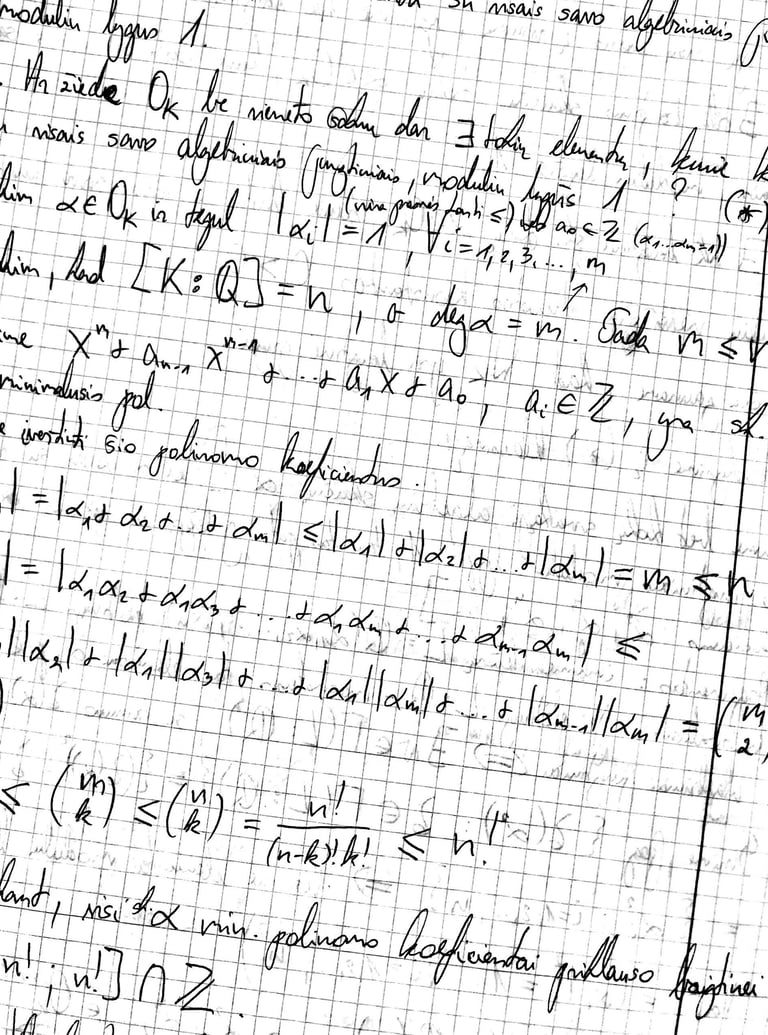 su visais savo algebriniais
moduliu lygus 1.
Ar žiede O_K be vieneto dar ∃ tokių elementų, kurie
visais savo algebriniais jungtiniais, moduliu lygūs 1 ? (*)
α ∈ O_K ir tegul |α_i| = 1, ∀i = 1, 2, 3, ..., m a_0 ∈ ℤ (α_1...α_m=1))
kad [K : Q] = n, o deg α = m. Tada m ≤
X^m + a_{n-1} X^{n-1} + ... + a_1 X + a_0, a_i ∈ ℤ, yra
minimalusis pol.
įvertinti šio polinomo koeficientus.
| = |α_1 + α_2 + ... + α_m| ≤ |α_1| + |α_2| + ... + |α_m| = m ≤ n
| = |α_1α_2 + α_1α_3 + ... + α_1α_m + ... + α_{m-1}α_m| ≤
||α_2| + |α_1||α_3| + ... + |α_1||α_m| + ... + |α_{m-1}||α_m| = (m 2
≤ (m k) ≤ (n k) = n!/((n-k)!k!) ≤ n!
visi α min. polinomo koeficientai priklauso
n! ; n!] ∩ ℤ.